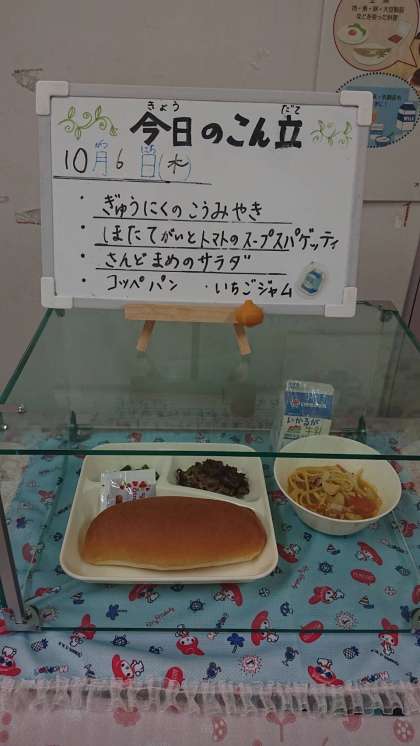 きょう
だて
今日のこん立
10月6日(水)
がつ
にち
・ぎゅうにくのこうみやき
・しまたてがいとトマトのスープスパゲッティ
・さんどまめのサラダ
・コッペパン ・いちごジャム
いかるが
牛乳